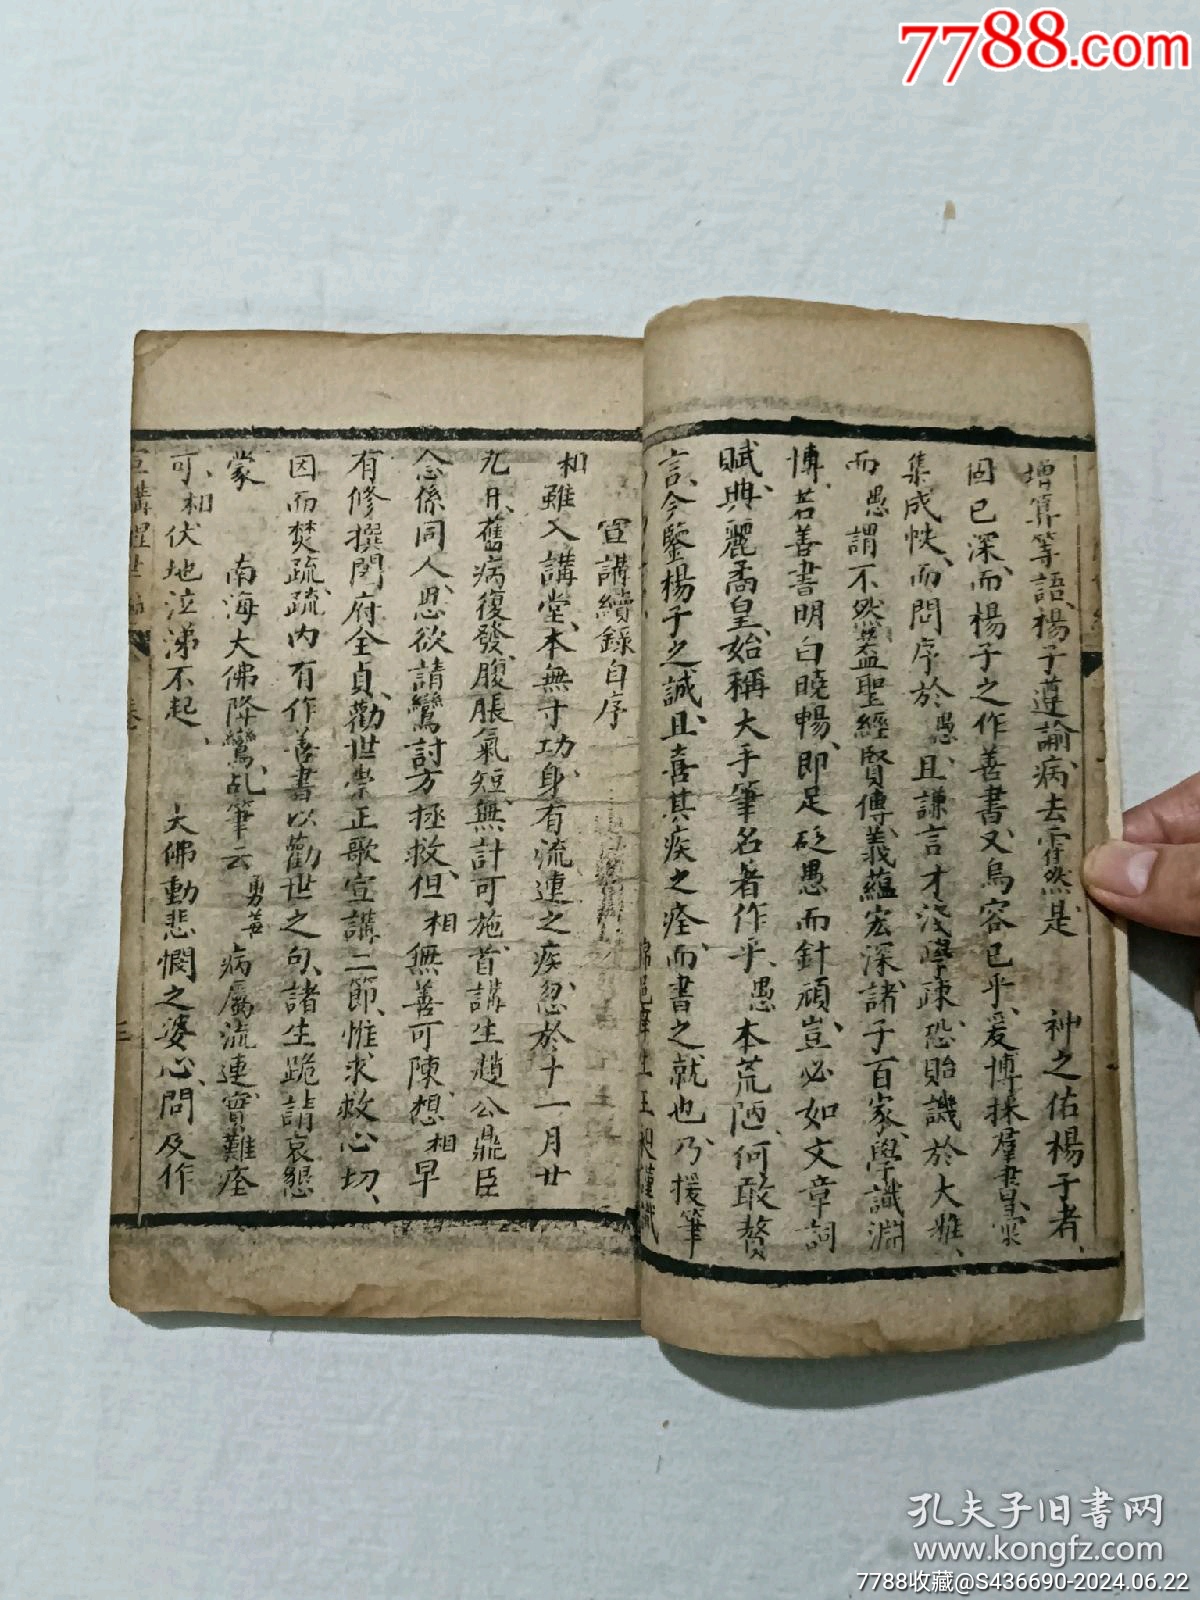 7788.com
增算等語楊子遵諭病去霍然是　神之佑楊子者
固已深而楊子之作善書又烏容已乎爰博採羣書
集成帙而問序於愚且謙言才淺學疎恐貽譏於大雅
而愚謂不然蓋聖經賢傳義蘊宏深諸子百家學識淵
博若善書明白曉暢即足砭愚而針頑豈必如文章詞
賦典麗矞皇始稱大手筆名著作乎愚本荒陋何敢贅
言今鑒楊子之誠且喜其疾之痊而書之就也乃援筆
宣講續錄自序
相雖入講堂本無寸功身有流連之疾忽於十一月廿
九日舊病復發腹脹氣短無計可施首講生趙公鼎臣
念係同人思欲請鸞討方拯救但相無善可陳想相早
有修撰閤府全貞勸世崇正歌宣講二節惟求救心切
因而焚疏疏內有作善書以勸世之句諸生跪請哀懇
蒙　南海大佛降鸞乩筆云　病屬流連實難痊
可相伏地泣涕不起　大佛動悲憫之婆心問及作
宣講醒世 卷
孔夫子旧书网
www.kongfz.com
7788收藏@S436690-2024.06.22